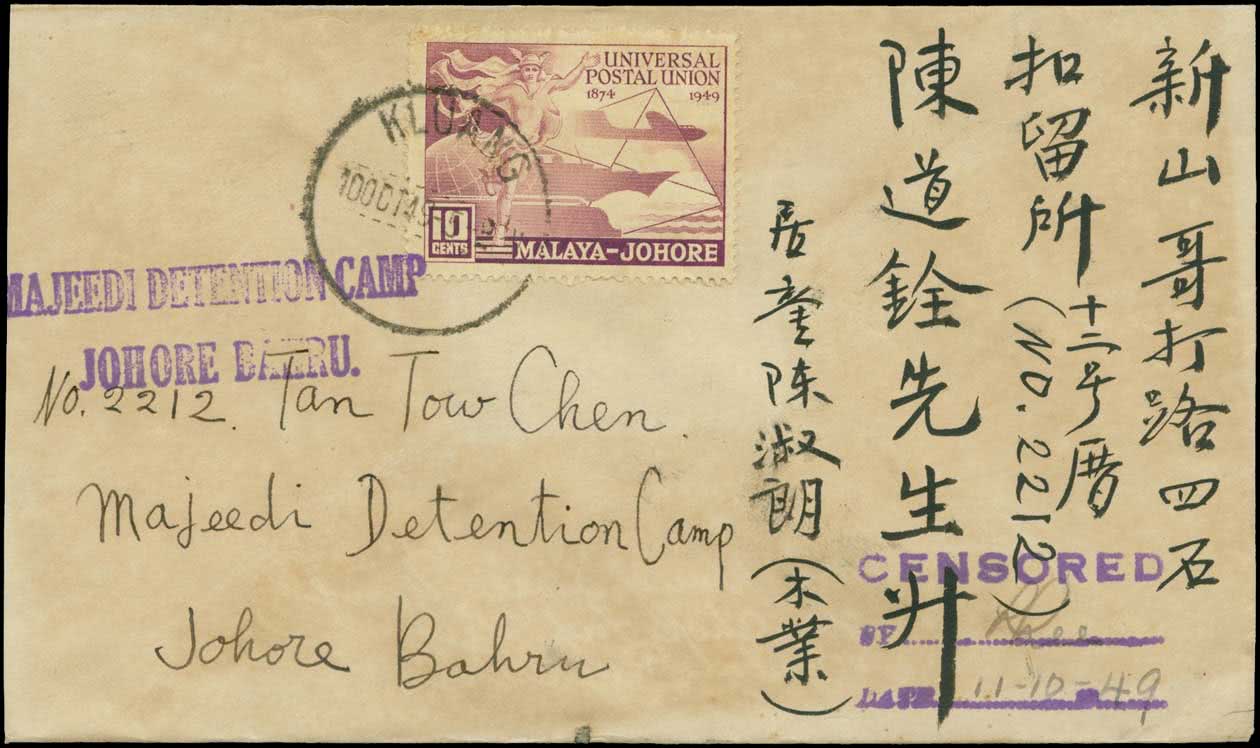 UNIVERSAL
POSTAL UNION
1874 1949
10
CENTS
MALAYA-JOHORE
KLUANG
10 OCT 49
MAJEEDI DETENTION CAMP
JOHORE BAHRU.
No. 2212. Tan Tow Chen.
Majeedi Detention Camp
Johore Bahru
新山哥打路四石
扣留所十二号厝(NO.2212)
陳道銓先生升
居銮陈淑朗(木業)
CENSORED
BY
DATE 11-10-49